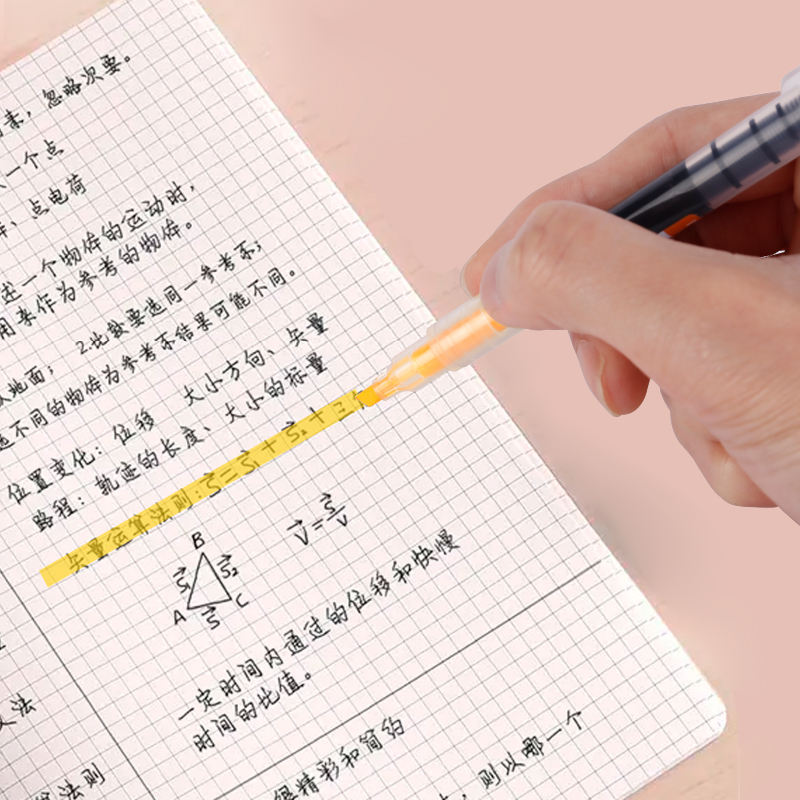 来，忽略次要。
一个点
、点电荷
述一个物体的运动时，
用来作为参考的物体。
地面； 2.比较要选同一参考系；
选不同的物体为参考系结果可能不同。
位置变化：位移 大小方向、矢量
路程：轨迹的长度、大小的标量
矢量运算法则：S⃗=S⃗₁+S⃗₂+三
B
S⃗₁ S⃗₂
A C
S⃗
V⃗=S⃗/V
一定时间内通过的位移和快慢
时间的比值。
法
算法则
很精彩和简约
，则以哪一个